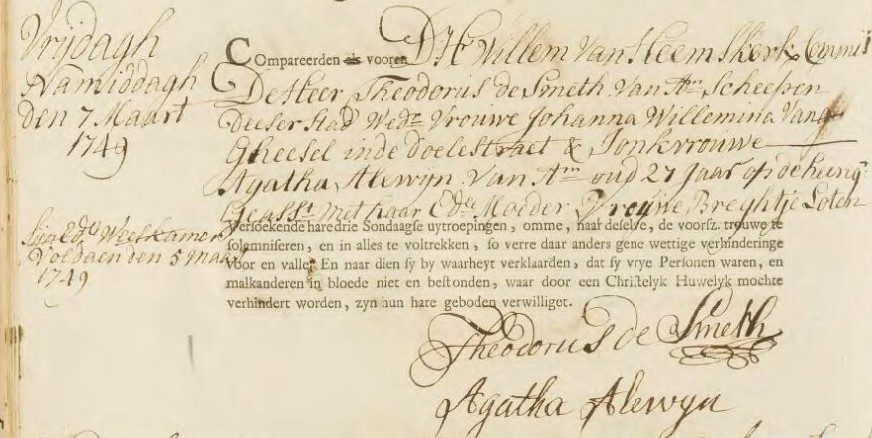 Vrijdagh
Namiddagh
den 7 Maart
1749
Compareerden als vooren D'Hr Willem Van Heemskerk Commis
De Heer Theodorus de Smeth Van Am Scheepen
Deeser Stad Wedr Vrouwe Johanna Willemina Van
Gheesel inde doelestraet & Jonkvrouwe
Agatha Alewyn Van Am oud 27 Jaar op de
geasst met haar Ede Moeder Vrouwe Breghtje Loten
Zijn Ede Weeskamer
Voldaen den 5 Maart
1749
Versoekende hare drie Sondaagse uytroepingen, omme, naar deselve, de voorsz. trouwe te
solemniseren, en in alles te voltrekken, so verre daar anders gene wettige verhinderinge
voor en valle. En naar dien sy by waarheyt verklaarden, dat sy vrye Personen waren, en
malkanderen in bloede niet en bestonden, waar door een Christelyk Huwelyk mochte
verhindert worden, zyn aun hare geboden verwilliget.
Theodorus de Smeth
Agatha Alewyn